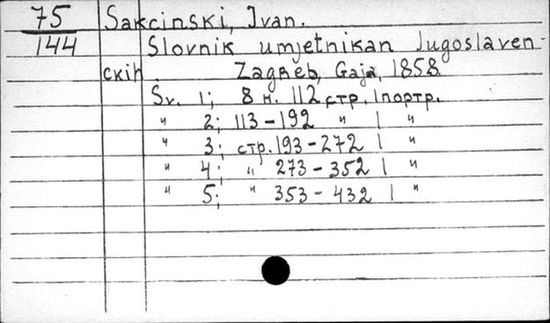 75 Sakcinski, Ivan.
144 Slovnik umjetnikah Jugoslaven-
skih. Zagreb, Gaja, 1858.
Sv. 1; 8 н. 112 стр. 1 портр.
" 2; 113-192 " 1 "
" 3; стр. 193-272 1 "
" 4; " 273-352 1 "
" 5; " 353-432 1 "